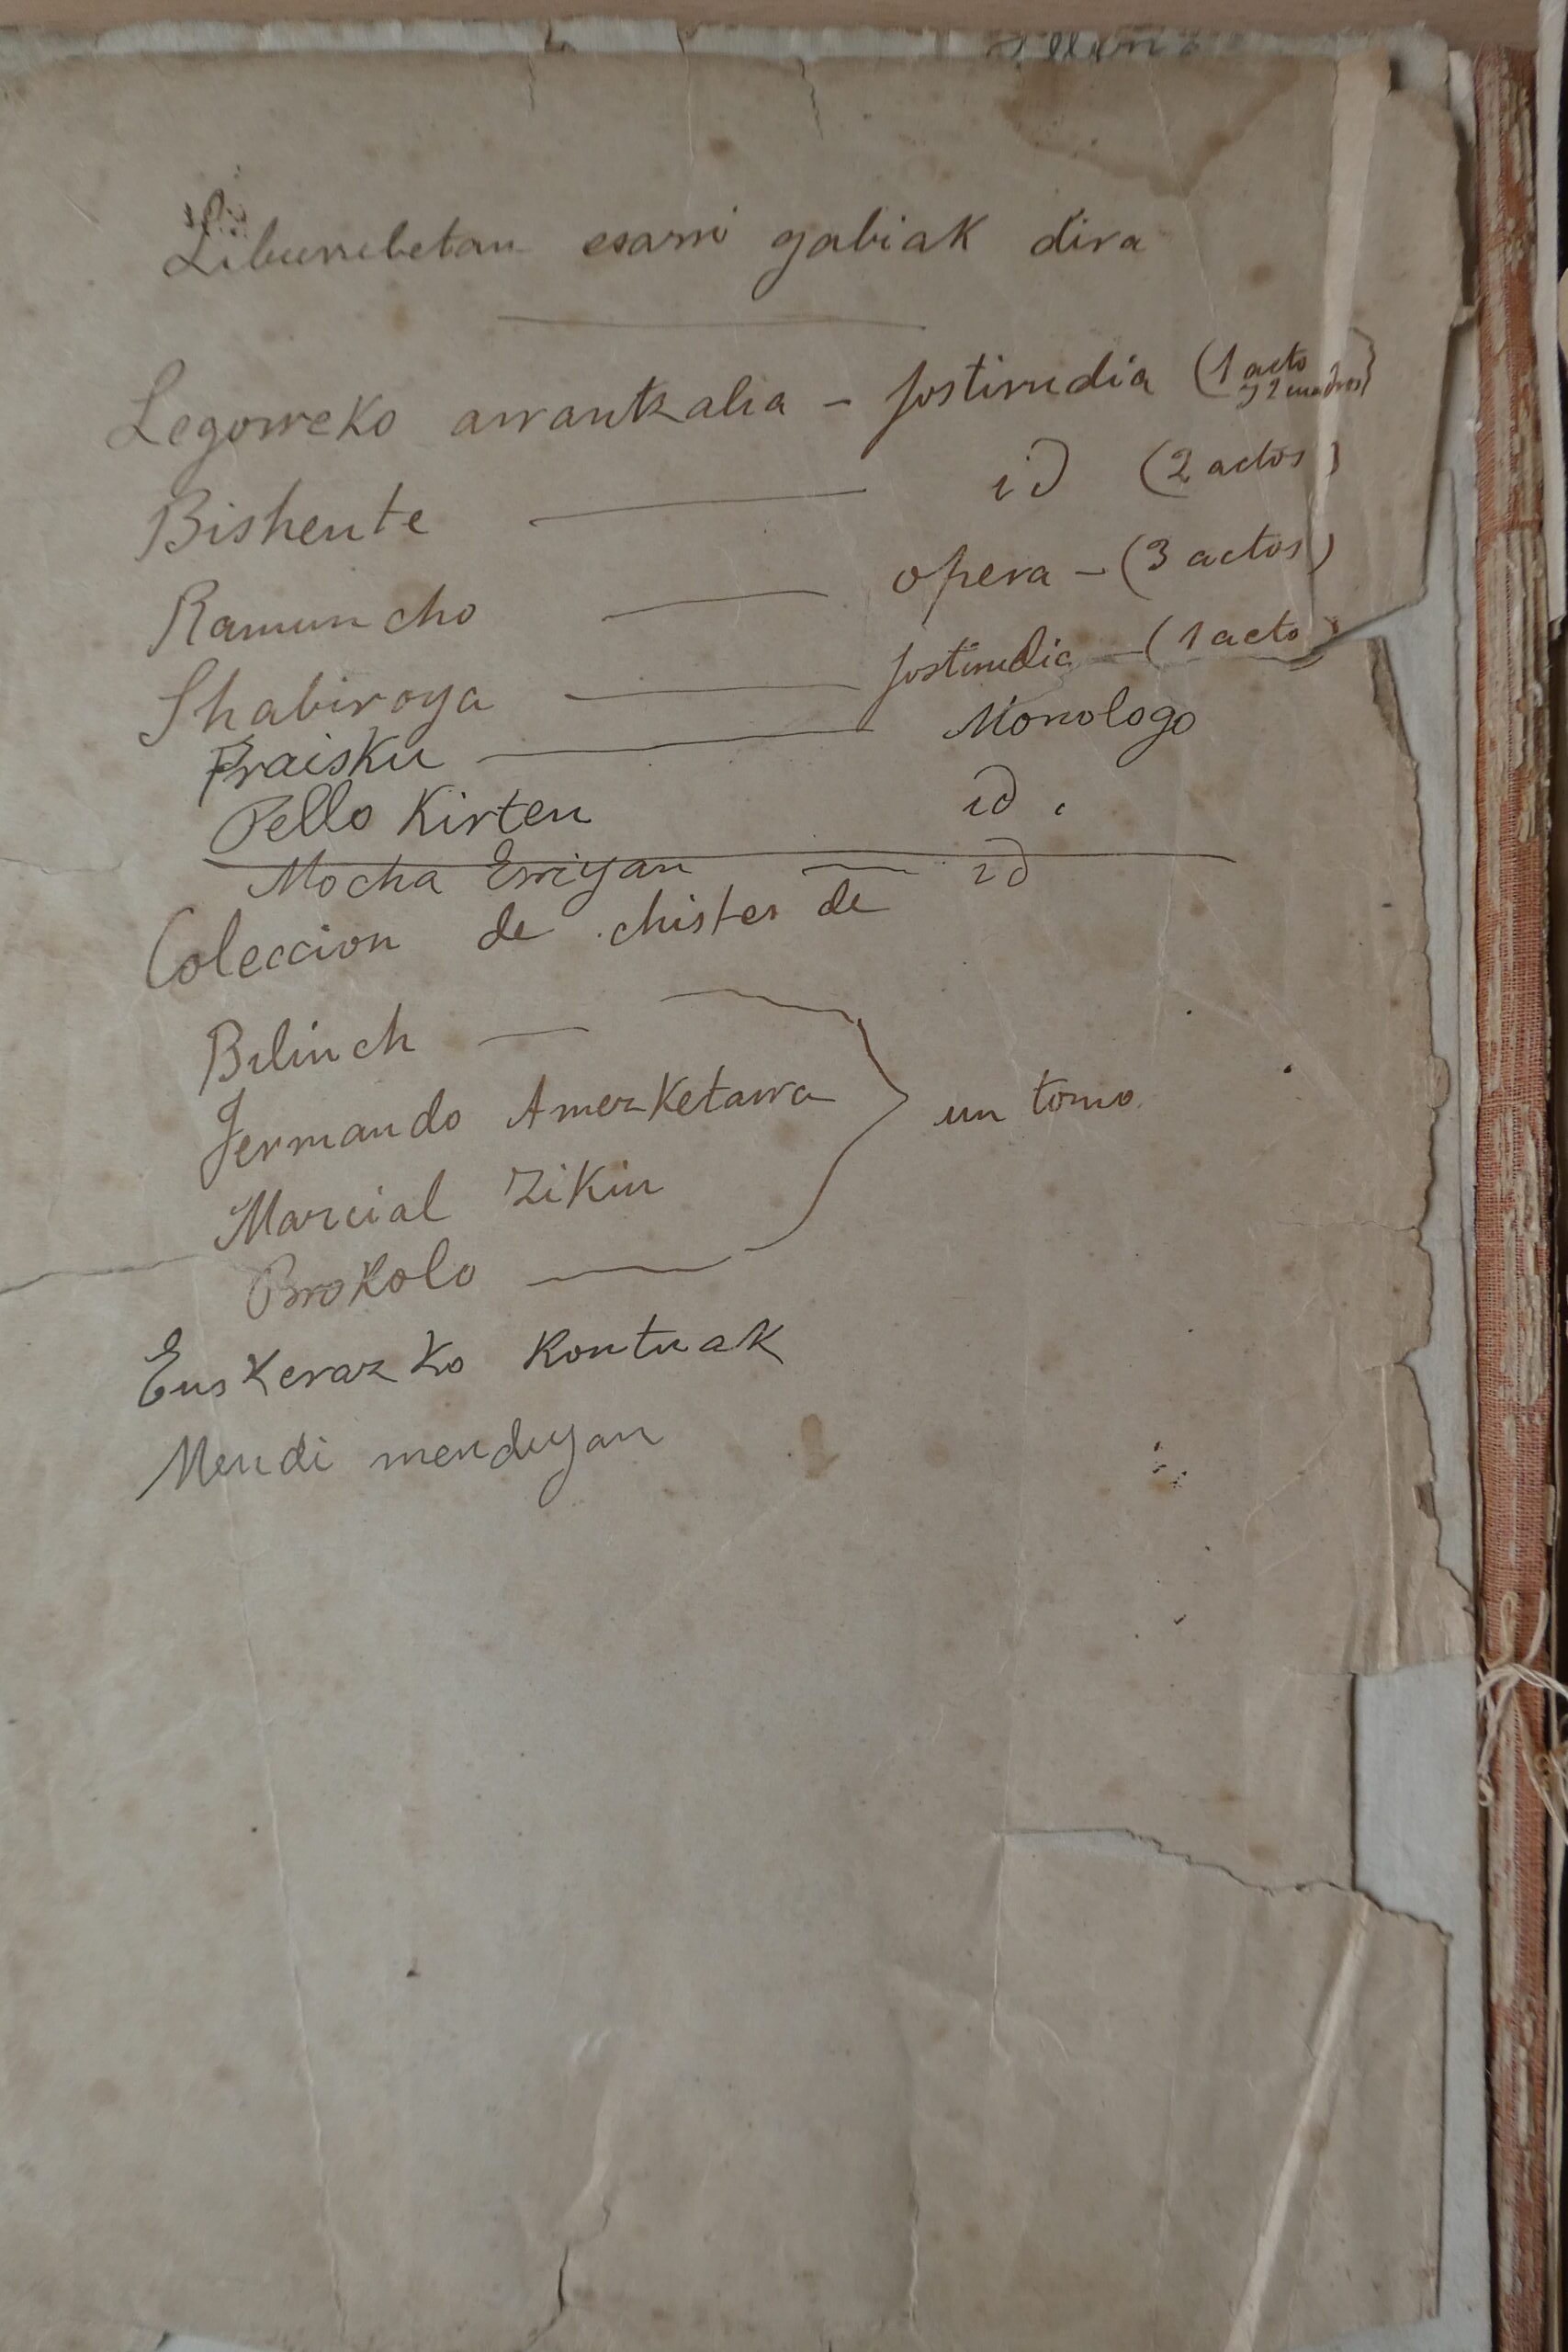 Liburubetan esarri gabiak dira
Legorreko arrantzalia - Jostirudia (1 acto y 2 cuadros)
Bishente — id (2 actos)
Ramuncho — opera - (3 actos)
Shabiroya — Jostirudia - (1 acto)
Praisku — Monologo
Pello Kirten id.
Mocha Erriyan — id
Coleccion de chistes de
Bilinch —
Fernando Amezketarra
un tomo
Marcial Zikin
Brokolo —
Euskerazko Kontuak
Mendi mendiyan